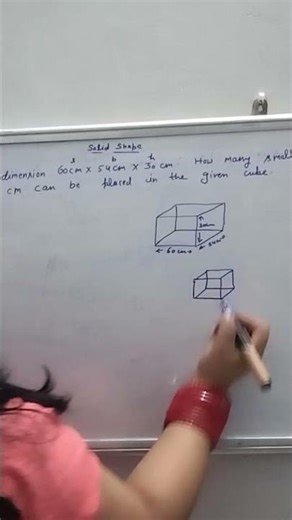 Solid Shape
l b h
dimension 60cm x 54cm x 30cm. How many small
cm can be placed in the given cube.
30cm
60cm
54cm